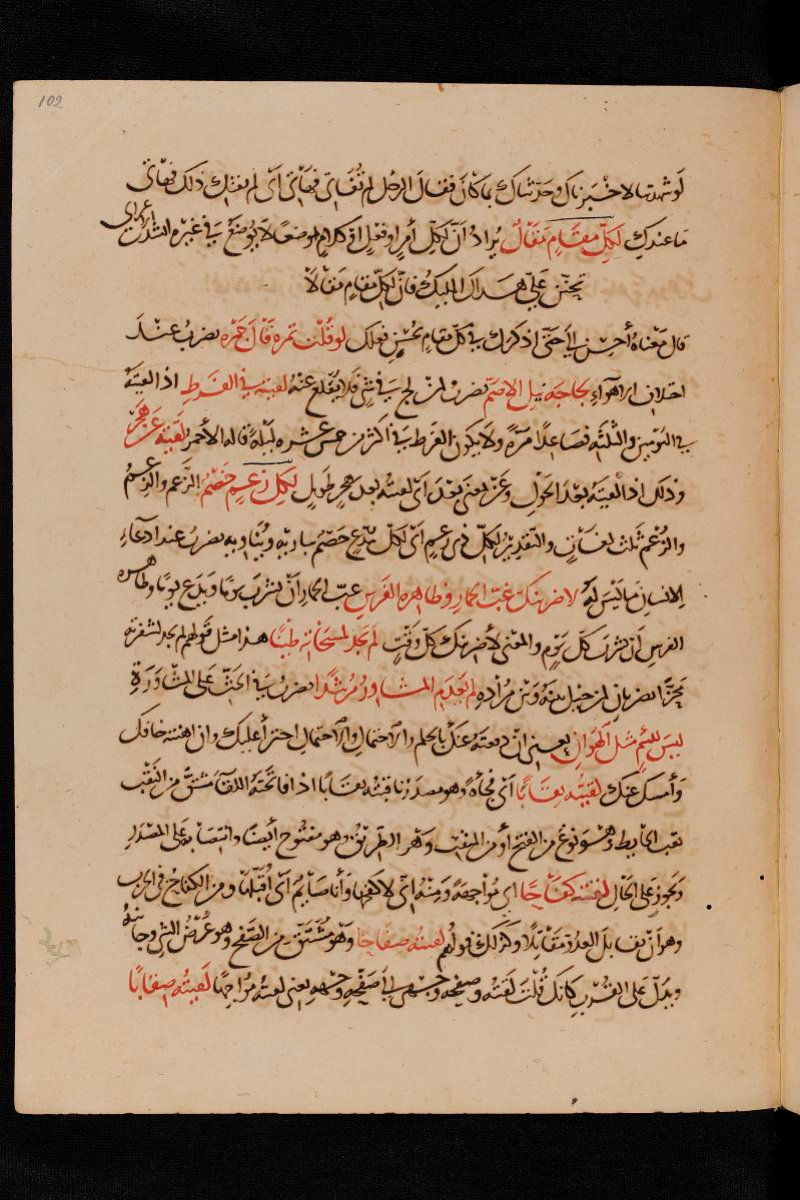 102
لو شهدتنا لاخبرناك وحدثناك بما كان فقال الرجل لم تفاتى ففاتى اى لم يفتك ذلك فهاتى
ما عندك لكل مقام مقال يراد ان لكل أمر او فعل او كلام موضعا لا يوضع فى غيره انشد ابن اعرابى
تحنن على هداك المليك فان لكل مقام مقالا
قال معناه أحسن الى حتى اذكرك فى كل مقام بحسن فعلك لو قلت تمرة قال جمرة يضرب عند
اختلاف الاهواء بحاجه نيل الاصم يضرب لمن لج فى شئ فلا يقلع عنه لقيته فى الفرط اذا لقيته
فى اليومين والثلثة فصاعدا مرة ولا يكون الفرط فى اكثر من خمس عشره ليلة قاله الأحمر لقيته عن هجر
وذلك اذا لقيته بعد الحول وعن بمعنى بعد اى لقيته بعد هجر طويل لكل زعيم خصم الزعم والزعم
والزعم ثلث لغات والتقدير لكل ذى زعم اى لكل مدع خصم يباريه ويناويه يضرب عند ادعاء
الانسان ما ليس له لاضربنك غب الحمار وظاهرة الفرس غب الحمار ان يشرب يوما ويدع يوما وظاهره
الفرس ان تشرب كل يوم والمعنى لأضربنك كل وقت لم يجد لمسحاته طينا هذا مثل قولهم لم يجد لشفرته
محزا يضربان لمن حيل بينه وبين مراده لم يعدم المشاور مرشدا يضرب فى الحث على المشاورة
ليس للئيم مثل الهوان يعنى ان دفعته عنك بالحلم والاحتمال اجترأ عليك وان اهنته خافك
وأمسك عنك لقيته نقابا اى فجأة وهو مصدر ناقبته نقابا اذا فاتحته اللقا مشتق من النقب
نقب الحايط وهو نوع من الفتح أو من المنقب وهو الطريق وهو مفتوح أيضا وانتصابه على المصدر
ويجوز على الحال لقيته كفاحا اى مواجهة ومنه انى لاكفحها وأنا صايم اى اقبلها ومن الكفاح فى الحرب
وهو أن يقابل العدو مقاتلا وكذلك قولهم لقيته صفاحا وهو مشتق من الصفح وهو عرض الشئ وجانبه
ويدل على القرب كانك قلت لقيته وصفحه وجهى الى صفحه وجهه يعنى لقيته مواجها لقيته صقابا